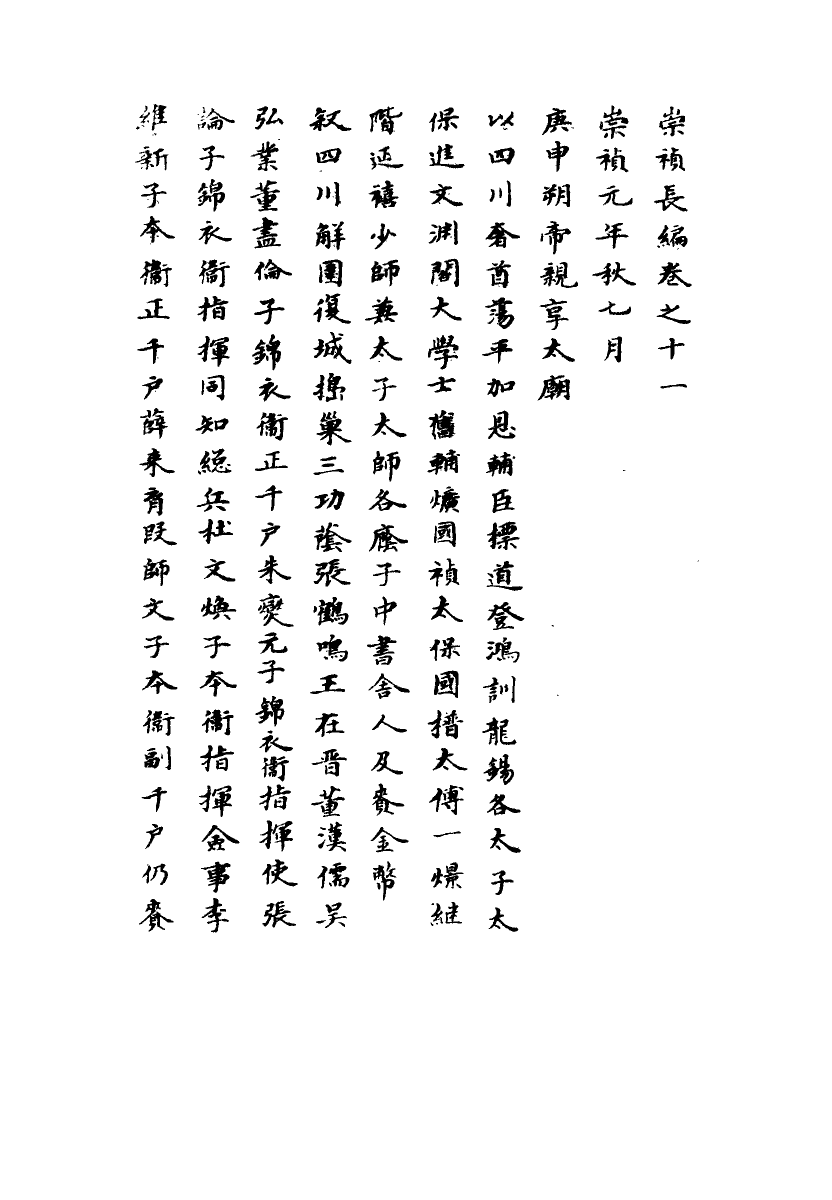 崇禎長編卷之十一
崇禎元年秋七月
庚申朔帝親享太廟
以四川奢酋蕩平加恩輔臣標道登鴻訓龍錫各太子太
保進文淵閣大學士舊輔爌國禎太保國𣚴太傅一燝継
階延禧少師兼太子太師各廕子中書舍人及賚金幣
叙四川解圍復城搗巢三功蔭張鶴鳴王在晋董漢儒吳
弘業董盡倫子錦衣衞正千户朱爕元子錦衣衞指揮使張
論子錦衣衞指揮同知総兵杜文煥子本衞指揮僉事李
維新子本衞正千户薛来胥段師文子本衞副千户仍賚